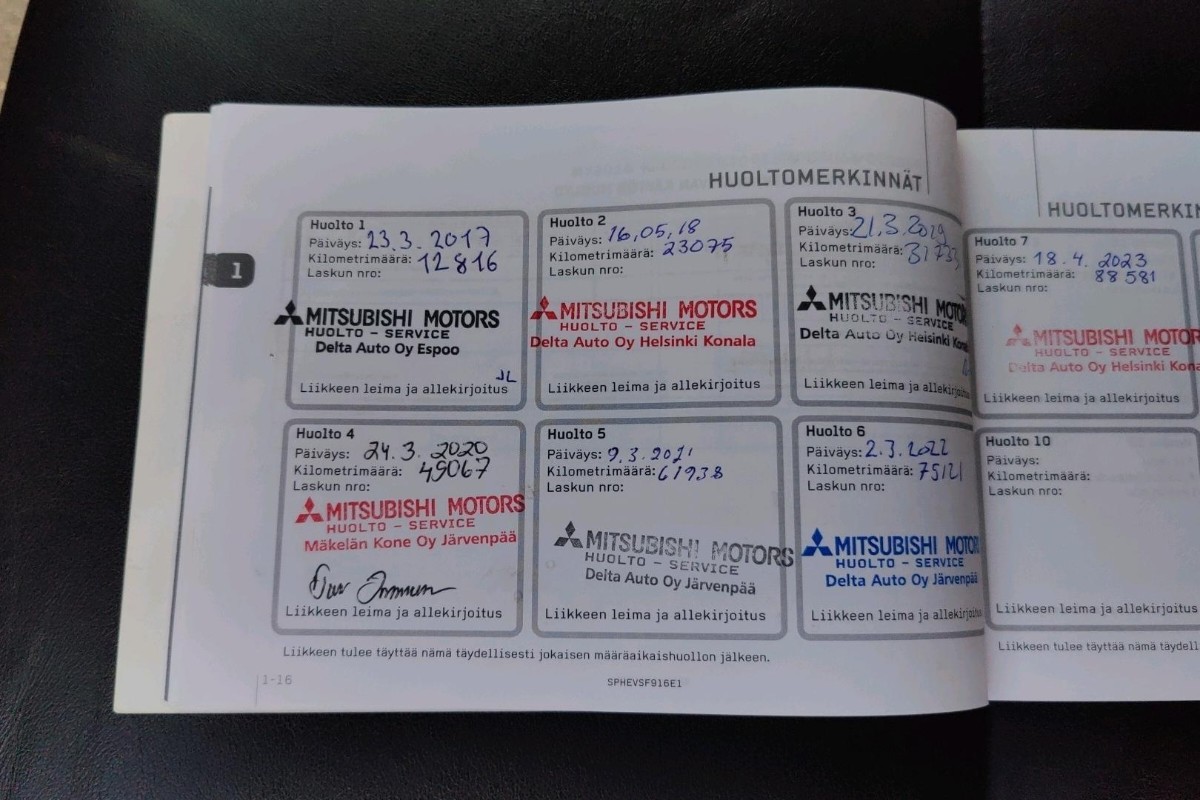 HUOLTOMERKINNÄT
1
Huolto 1
Päiväys: 23.3.2017
Kilometrimäärä: 12816
Laskun nro:
MITSUBISHI MOTORS
HUOLTO - SERVICE
Delta Auto Oy Espoo
JL
Liikkeen leima ja allekirjoitus
Huolto 2
Päiväys: 16,05,18
Kilometrimäärä: 23075
Laskun nro:
MITSUBISHI MOTORS
HUOLTO - SERVICE
Delta Auto Oy Helsinki Konala
Liikkeen leima ja allekirjoitus
Huolto 3
Päiväys: 21.3.2019
Kilometrimäärä:
Laskun nro:
MITSUBISHI MOTOR
HUOLTO - SERVICE
Delta Auto Oy Helsinki Kona
Liikkeen leima ja allekirjoitus
Huolto 4
Päiväys: 24.3.2020
Kilometrimäärä: 49067
Laskun nro:
MITSUBISHI MOTORS
HUOLTO - SERVICE
Mäkelän Kone Oy Järvenpää
Liikkeen leima ja allekirjoitus
Huolto 5
Päiväys: 9.3.2021
Kilometrimäärä: 61938
Laskun nro:
MITSUBISHI MOTORS
HUOLTO - SERVICE
Delta Auto Oy Järvenpää
Liikkeen leima ja allekirjoitus
Huolto 6
Päiväys: 2.3.2022
Kilometrimäärä: 75121
Laskun nro:
MITSUBISHI MOTOR
HUOLTO - SERVICE
Delta Auto Oy Järvenpää
Liikkeen leima ja allekirjoitus
Liikkeen tulee täyttää nämä täydellisesti jokaisen määräaikaishuollon jälkeen.
1-16
SPHEVSF916E1
HUOLTOMERKIN
Huolto 7
Päiväys: 18.4.2023
Kilometrimäärä: 88581
Laskun nro:
MITSUBISHI MOTOR
HUOLTO - SERVICE
Delta Auto Oy Helsinki Kona
Liikkeen leima ja allekirjoitus
Huolto 10
Päiväys:
Kilometrimäärä:
Laskun nro:
Liikkeen leima ja allekirjoitus
Liikkeen tulee täyttää nämä täydell